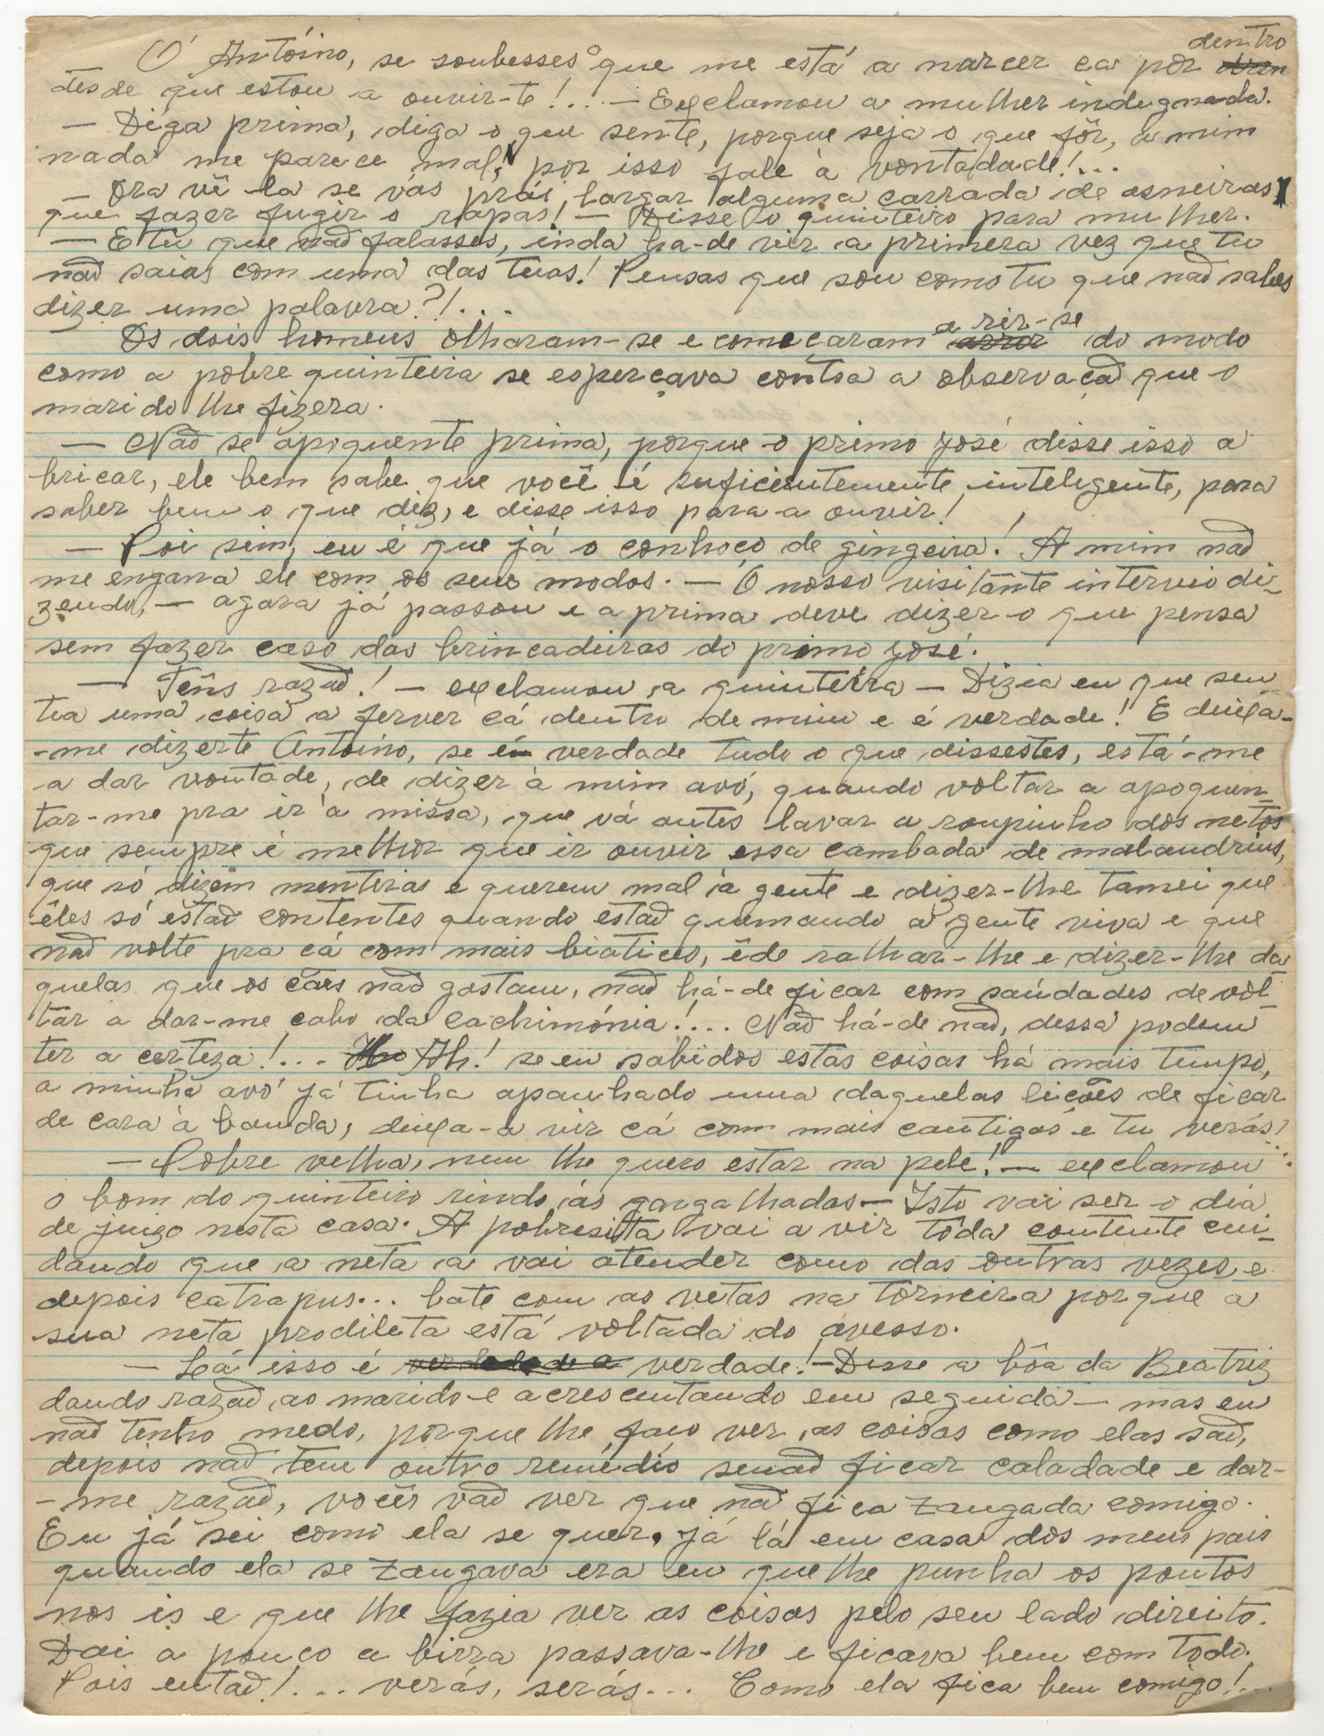 Ó Antóino, se soubesses o que me está a narcer ca por dentro
desde que estou a ouvir-te!... — Exclamou a mulher indegnada.
— Diga prima, diga o que sente, porque seja o que fôr, a mim
nada me parece mal, por isso fale à vontadade!...
— Ora vê la se vás prái, largar alguma carrada de asneiras
que fazer fugir o rapas! — Disse o quinteiro para mulher.
— E tu que não falasses, inda ha-de vir a primera vez que tu
não saias com uma das tuas! Pensas que sou como tu que não sabes
dizer uma palavra?!...
Os dois homens olharam-se e começaram a rir-se do modo
como a pobre quinteira se esperçava contra a observação que o
marido lhe fizera.
— Não se apoquente prima, porque o primo José disse isso a
bricar, ele bem sabe que você é suficientemente inteligente, para
saber bem o que diz, e disse isso para a ouvir!
— Poi sim, eu é que já o conhoco de gingeira! A mim não
me engana ele com os seus modos. — O nosso visitante interveio di-
zendo, — agora já passou e a prima deve dizer o que pensa
sem fazer caso das brincadeiras do primo José.
— Tens razão! — exclamou a quinteira — Dizia eu que sen-
tia uma coisa a ferver cá dentro de mim e é verdade! E deixa-
-me dizerte Antoino, se é verdade tudo o que dissestes, está-me
a dar vontade, de dizer à mim avó, quando voltar a apoquen-
tar-me pra ir à missa, que vá antes lavar a roupinho dos netos
que sempre é melhor que ir ouvir essa cambada de malandrins,
que só dizem mentiras e querem mal à gente e dizer-lhe tamei que
êles só estão contentes quando estão quemando a gente viva e que
não volte pra cá com mais biatices, êde ralhar-lhe e dizer-lhe da
quelas que os cães não gostam, não há-de ficar com saúdades de vol-
tar a dar-me cabo da cachimónia!... Não há-de não, dessa podem
ter a certeza!... Ah! se eu sabidos estas coisas há mais tempo,
a minha avó já tinha apanhado uma daquelas lições de ficar
de cara à banda, deixa-a vir cá com mais cantigas e tu verás!...
— Pobre velha, nem lhe quero estar na pele! — exclamou
o bom do quinteiro rindo às gargalhadas — Isto vai ser o dia
de juizo nesta casa. A pobresita vai a vir tôda contente cui-
dando que a neta a vai atender como das outras vezes e
depois catrapus... bate com as vetas na torneira porque a
sua neta prodileta está voltada do avesso.
— Lá isso é verdade! — Disse a bôa da Beatriz
dando razão ao marido e acrescentando em seguida — mas eu
não tenho medo, porque lhe faço ver as coisas como elas são,
depois não tem outro remédio senão ficar caladade e dar-
-me razão, vocês vão ver que não fica zangada comigo.
Eu já sei como ela se quer, já lá em casa dos meus pais
quando ela se zangava era eu que lhe punha os pontos
nos is e que lhe fazia ver as coisas pelo seu lado direito.
Dai a pouco a birra passava-lhe e ficava bem com todo.
Pois então!... verás, serás... Como ela fica bem comigo!...